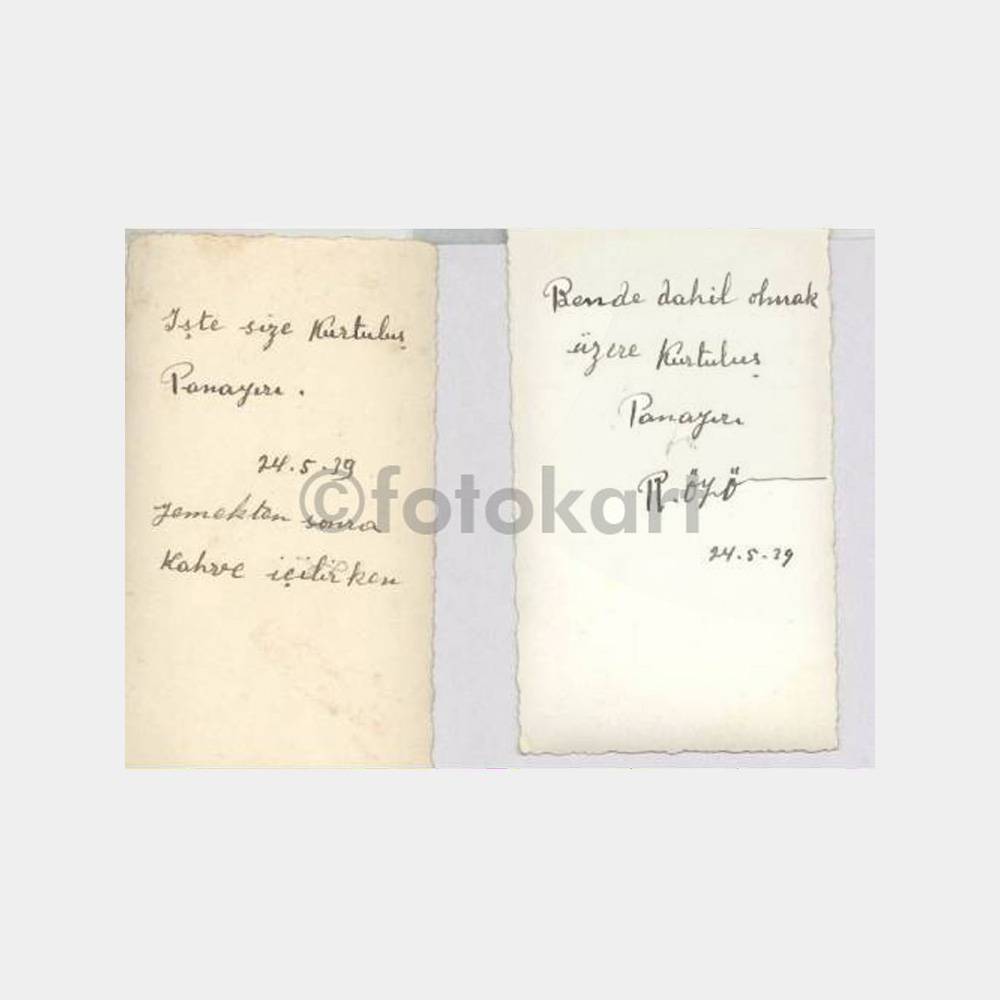 İşte size Kurtuluş
Panayırı.
24.5.39
yemekten sonra
Kahve içilirken
Bende dahil olmak
üzere Kurtuluş
Panayırı
24.5.39
©fotokart